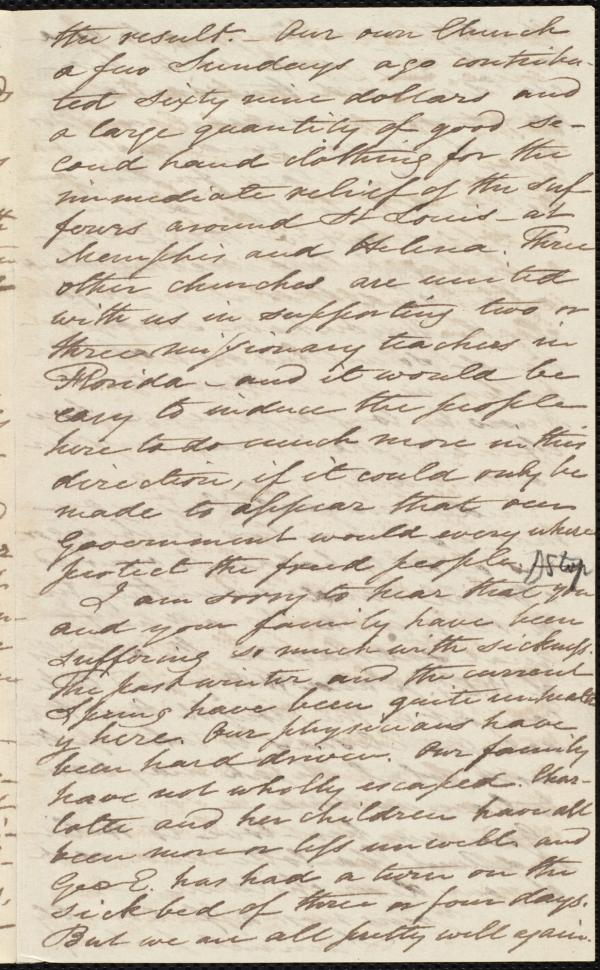 the result. - Our own Church
a few Sundays ago contribu-
ted sixty nine dollars and
a large quantity of good se-
cond hand clothing for the
immediate relief of the suf
ferers around St Louis - at
Memphis and Helena. Three
other churches are united
with us in supporting two or
three missionary teachers in
Florida - and it would be
easy to induce the people
here to do much more in this
direction, if it could only be
made to appear that our
Government would every where
protect the freed people. Stop
I am sorry to hear that you
and your family have been
suffering so much with sickness.
The past winter and the current
Spring have been quite unhealth
y here. Our physicians have
been hard driven. Our family
have not wholly escaped. Char-
lotte and her children have all
been more or less unwell. and
Geo E. has had a turn on the
sick bed of three or four days.
But we are all pretty well again.